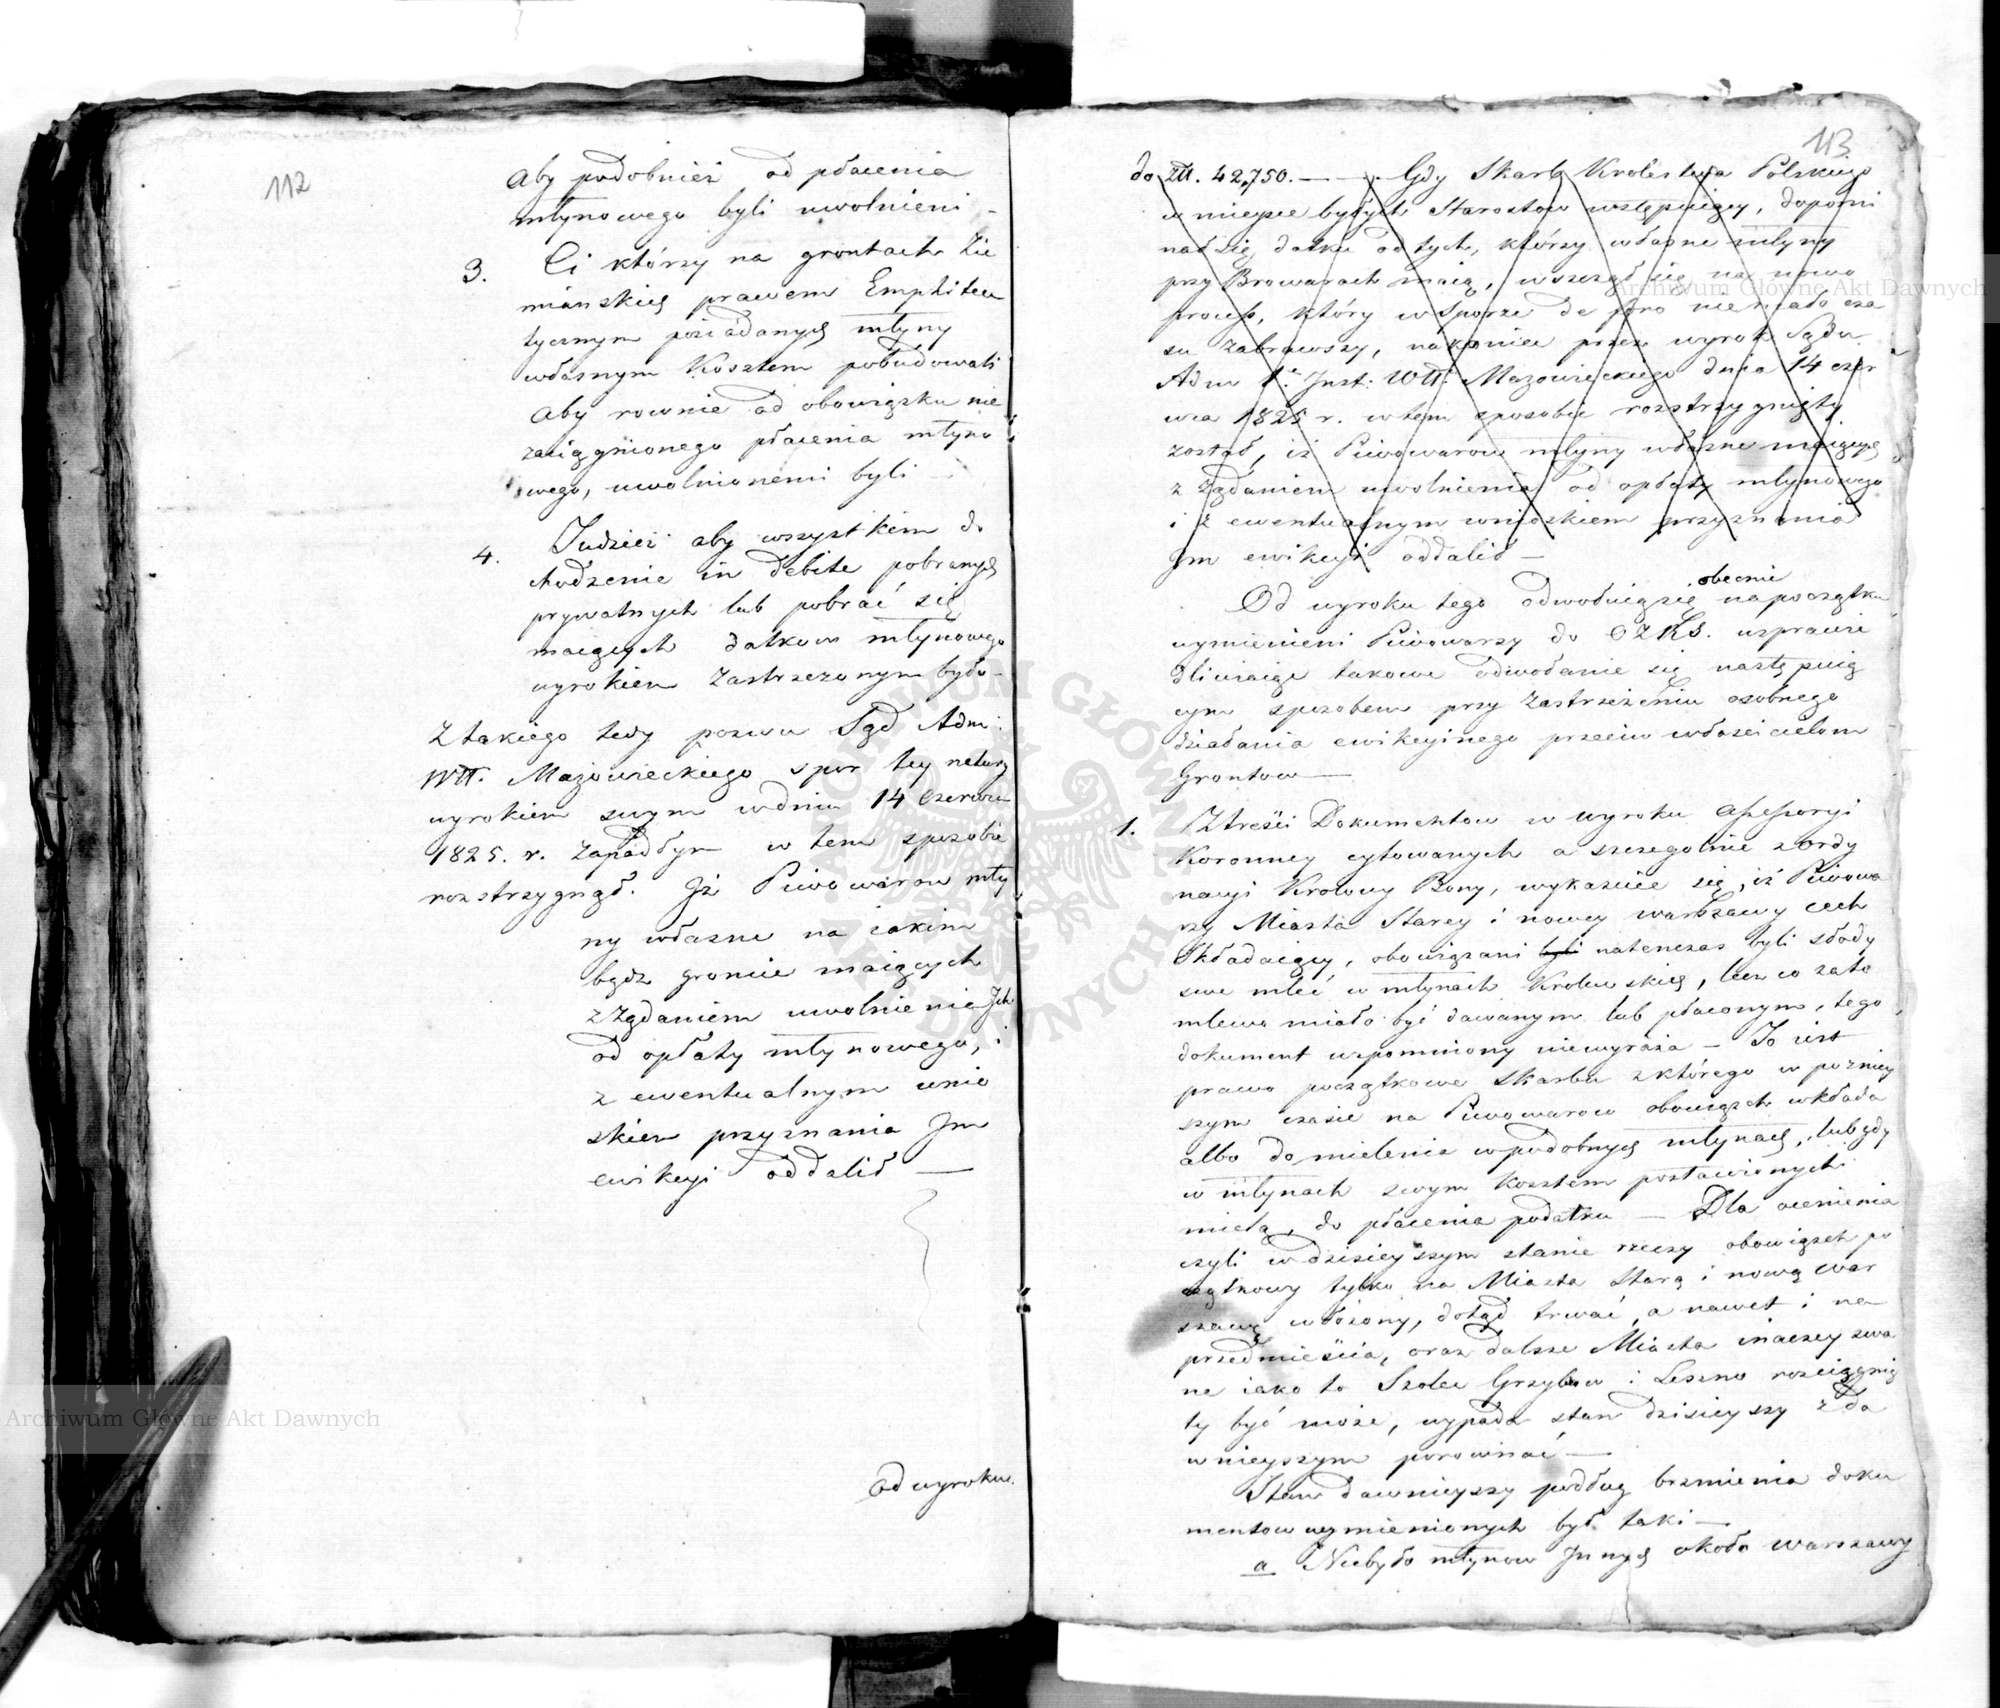 112
Aby podobnież od płacenia
młynowego byli uwolnieni -
3. Ci którzy na grontach Zie
mianskich prawem Emphiteu
tycznym posiadanych młyny
własnym Kosztem pobudowali
Aby rownie od obowiązku nie
zaciągnionego płacenia młyno
wego, uwolnionemi byli -
4. Tudzież aby wszystkim do
chodzenie in debite pobranych
prywatnych lub pobrać się
maiących datkow młynowego
wyrokiem zastrzeżonym było -
Z takiego tedy pozwu Sąd Adm:
Wtt. Mazowieckiego spor tey natury
wyrokiem swym w dniu 14 Czerwca
1825. r. zapadłym w tem sposobie
rozstrzygnął. Iż Piwowarow mły
ny własne na iakim
bądz groncie maiących
z żądaniem uwolnienia Ich
od opłaty młynowego, i
z ewentualnym wnio
skiem przyznania Im
ewikcyi oddalił —
od wyroku.
113
do Złł. 42,750. — Gdy Skarb Krolestwa Polskiego
w mieysce byłych Starostow wstępuiący, dopomi
nał się datku od tych, którzy własne młyny
przy Browarach maią, wszczął się na nowo
process, który w sporze de foro nie mało cza
su zabrawszy, nakoniec przez wyrok Sądu
Adm 1ey Inst: Wtt. Mazowieckiego dnia 14 czer
wca 1825 r. w tem sposobie rozstrzygnięty
został, iż Piwowarow młyny własne maiących
z żądaniem uwolnienia od opłaty młynowego
i z ewentualnym wnioskiem przyznania
Im ewikcyi oddalił —
Od wyroku tego odwołuiąc się obecnie na początku
wymienieni Piwowarzy do OZKS. usprawie
dliwiaią takowe odwołanie się następuią
cym sposobem przy zastrzeżeniu osobnego
działania ewikcyinego przeciw właścicielom
Grontow —
1. Z treści Dokumentow w wyroku Assessoryi
Koronney cytowanych a szczegolnie z ordy
nacyi Krolowy Bony, wykazuie się, iż Piwowa
rzy Miasta Starey i nowey warszawy cech
Składaiący, obowiązani byli natenczas byli słody
swe mleć w młynach Krolewskich, lecz co zato
mlewo miało być dawanym lub płaconym, tego
dokument wspomniony niewyraża — To iest
prawo początkowe Skarbu z którego w pozniey
szym czasie na Piwowarow obowiązek wkłada
albo do mielenia w podobnych młynach, lub gdy
w młynach swym kosztem postawionych
mielą, do płacenia podatku — Dla ocenienia
czyli w dzisieyszym stanie rzeczy obowiązek po
czątkowy tylko na Miasta Starą i nową War
szawę włożony, dotąd trwać, a nawet i na
przedmieścia, oraz dalsze Miasta inaczey zwa
ne iako to Solec Grzybow i Leszno rozciągnię
ty być może, wypada stan dzisieyszy z da
wnieyszym porownać —
Stan dawnieyszy podług brzmienia doku
mentow wymienionych był taki —
a Niebyło młynow Innych około warszawy